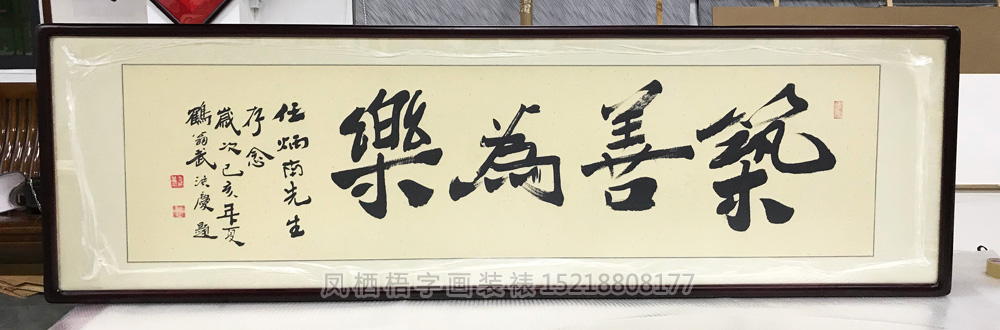 築善為樂
任炳南先生
存念
歲次己亥年夏
鶴翁武法慶題
凤栖梧字画装裱15218808177